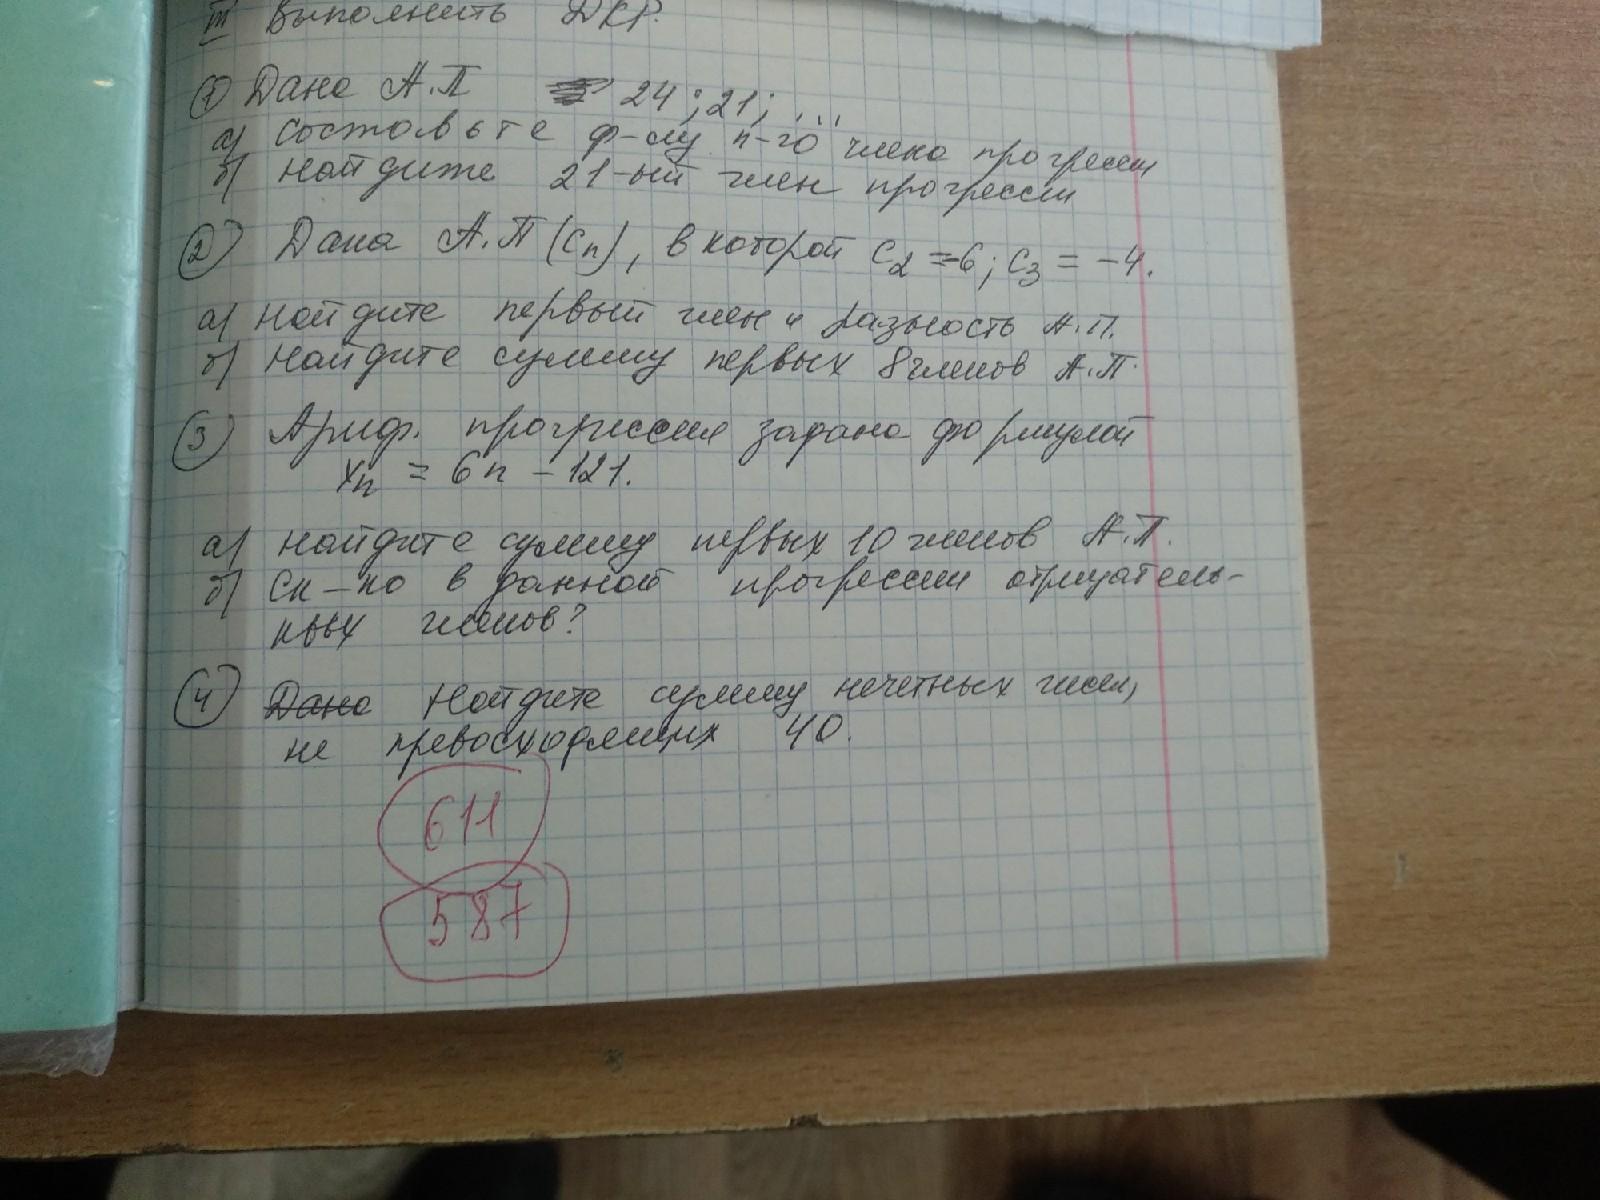 III Выполнить ДКР.
1 Дана А.П 24; 21; ...
а) составьте ф-лу n-го члена прогрессии
б) найдите 21-ый член прогрессии
2 Дана А.П (Cn), в которой C2 = -6; C3 = -4.
а) найдите первый член и разность А.П.
б) найдите сумму первых 8 членов А.П.
3 Ариф. прогрессия задана формулой
xn = 6n - 121.
а) найдите сумму первых 10 членов А.П.
б) Ск-ко в данной прогрессии отрицатель-
ных членов?
4 Дано Найдите сумму нечетных чисел,
не превосходящих 40.
611
587